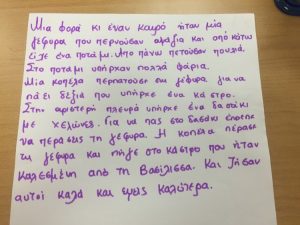 Μια φορά κι έναν καιρό ήταν μία
γέφυρα που περνούσαν αμάξια και από κάτω
είχε ένα ποτάμι. Από πάνω πετούσαν πουλιά.
Στο ποτάμι υπήρχαν πολλά ψάρια.
Μια κοπέλα περπατούσε στη γέφυρα για να
πάει δεξιά που υπήρχε ένα κάστρο.
Στην αριστερή πλευρά υπήρχε ένα δασάκι
με χελώνες. Για να πας στο δασάκι έπρεπε
να περάσεις τη γέφυρα. Η κοπέλα πέρασε
τη γέφυρα και πήγε στο κάστρο που ήταν
καλεσμένη από τη Βασίλισσα. Και ζήσαν
αυτοί καλά και εμείς καλύτερα.